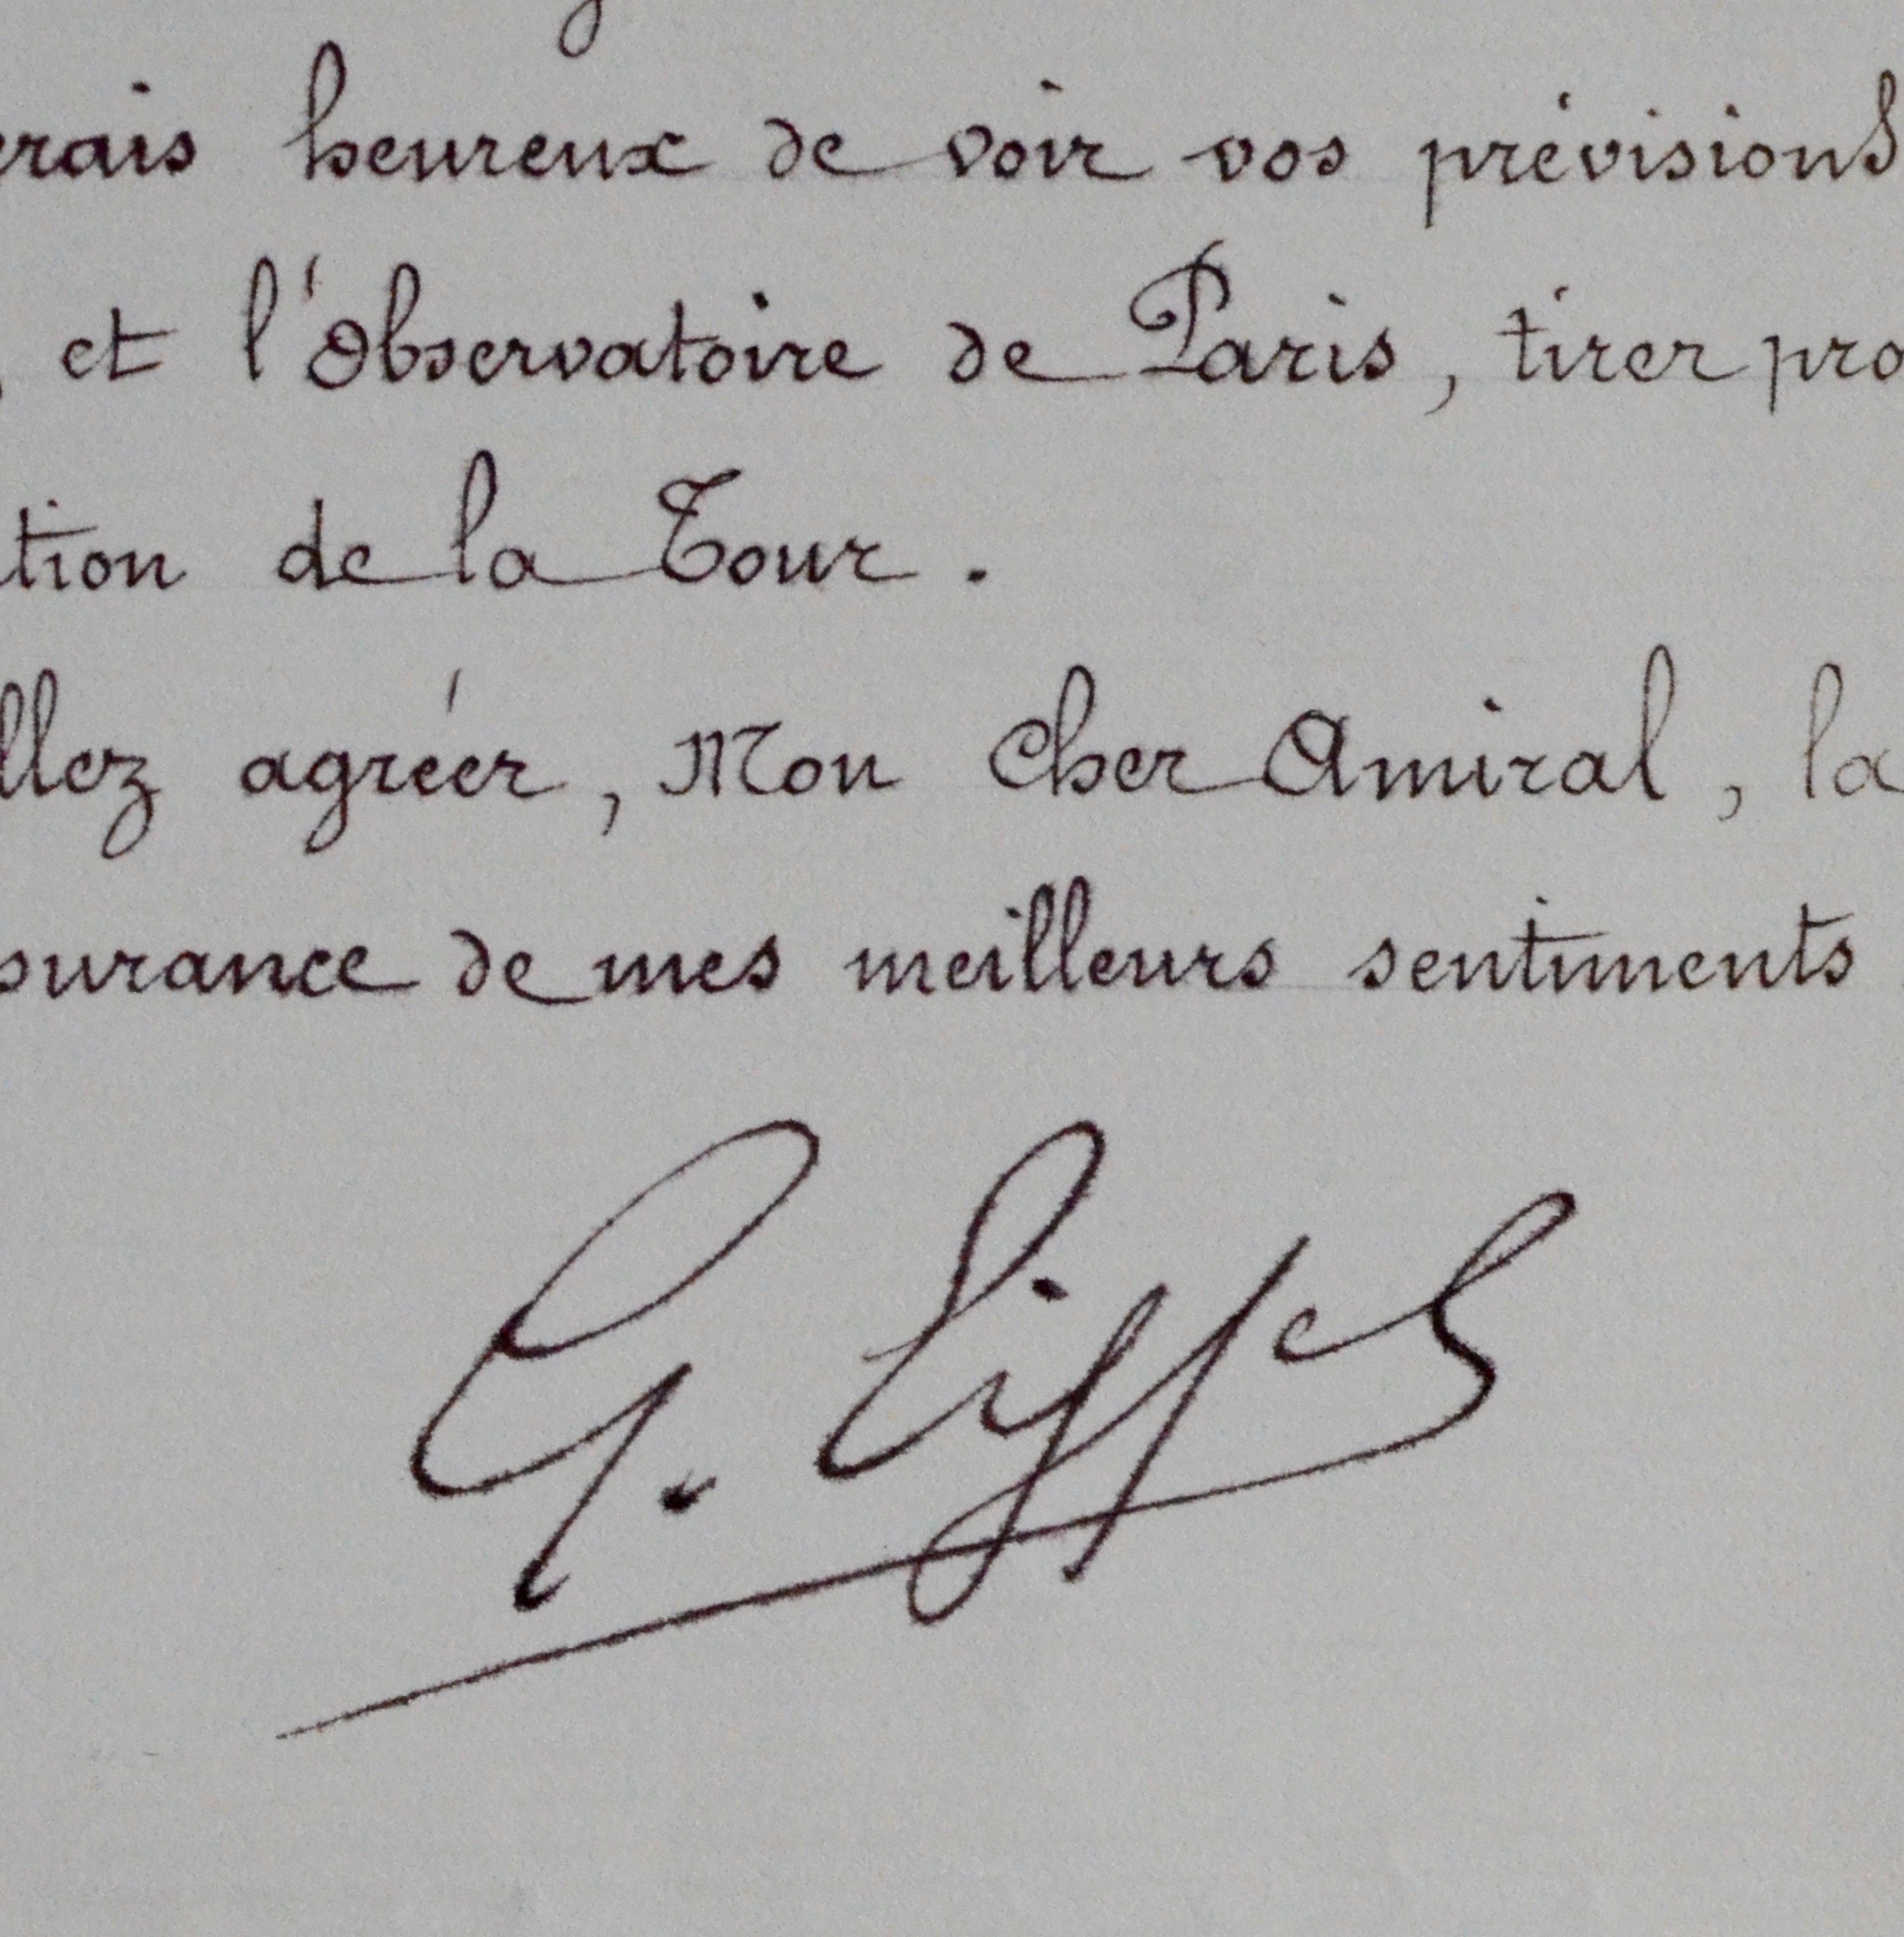 erais heureux de voir vos prévisions
, et l'Observatoire de Paris, tirer pro
tion de la Tour.
llez agréer, Mon Cher Amiral, la
surance de mes meilleurs sentiments
G. Eiffel